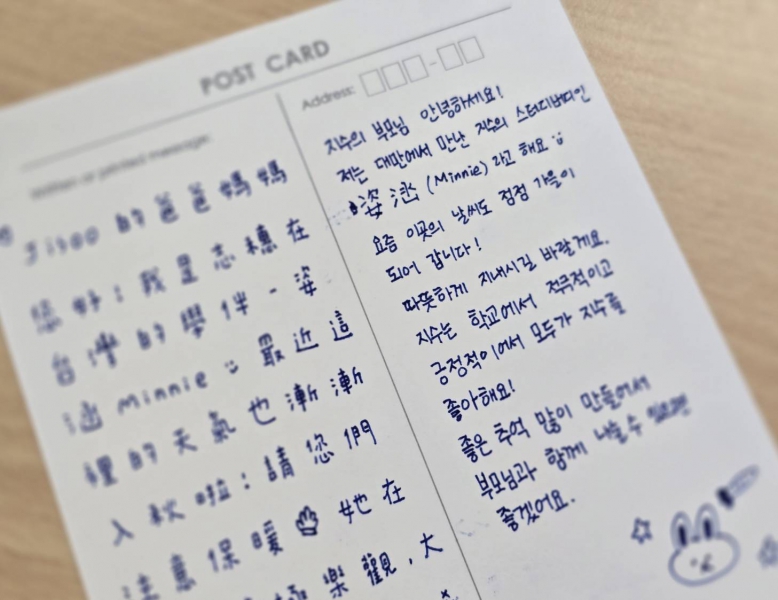 POST CARD
Address:
Written or printed message:
Jisoo 的 爸 爸 媽 媽
您 好 : 我 是 志 穗 在
台 灣 的 學 伴 - 姿
涵 Minnie 最 近 這
裡 的 天 氣 也 漸 漸
入 秋 啦 : 請 您 們
注 意 保 暖 她 在
極 樂 觀 , 大
지수의 부모님 안녕하세요!
저는 대만에서 만난 지수의 스터디버디인
姿涵 (Minnie) 라고 해요
요즘 이곳의 날씨도 점점 가을이
되어 갑니다!
따뜻하게 지내시길 바랄게요.
지수는 학교에서 적극적이고
긍정적이어서 모두가 지수를
좋아해요!
좋은 추억 많이 만들어서
부모님과 함께 나눌 수 있으면
좋겠어요.